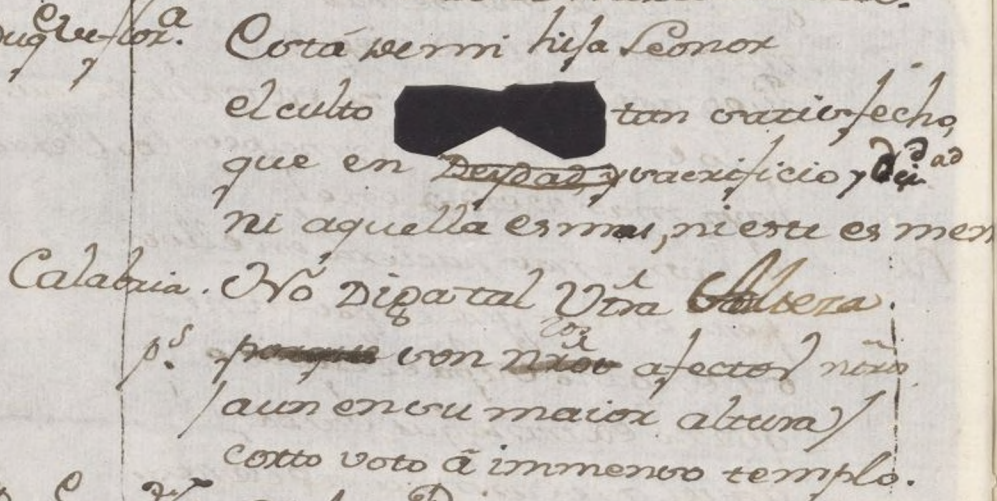 Duq.e y Flor.a Está de mi hija Leonor
el culto tan satisfecho,
que en Deydad, y sacrificio, y deidad
ni aquella es mas, ni este es men
Calabria. No Diga tal Vtra Alteza.
p.s porque son los nros afectos ntros
(aun en su maior altura)
corto voto â immenso templo.